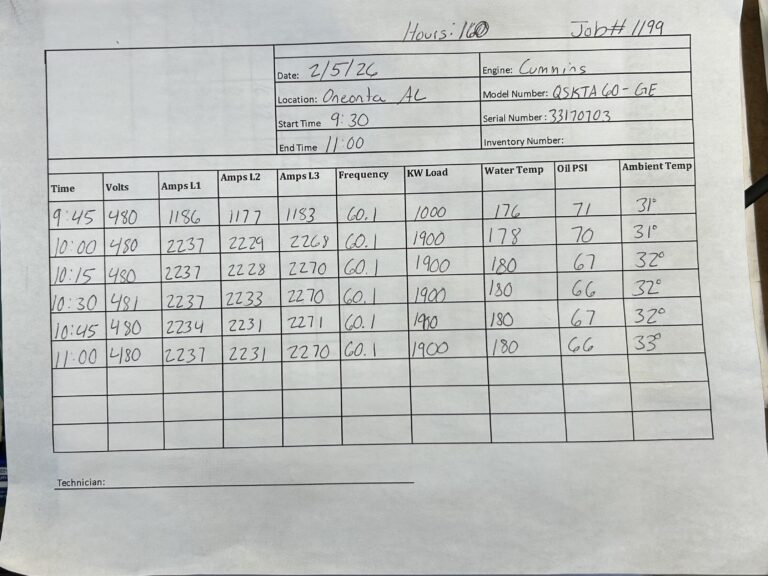 Hours: 160 Job# 1199
Date: 2/5/26 Engine: Cummins
Location: Oneonta AL Model Number: QSKTA60-GE
Start Time 9:30 Serial Number: 33170703
End Time 11:00 Inventory Number:
Time Volts Amps L1 Amps L2 Amps L3 Frequency KW Load Water Temp Oil PSI Ambient Temp
9:45 480 1186 1177 1183 60.1 1000 176 71 31°
10:00 480 2237 2229 2268 60.1 1900 178 70 31°
10:15 480 2237 2228 2270 60.1 1900 180 67 32°
10:30 481 2237 2233 2270 60.1 1900 180 66 32°
10:45 480 2234 2231 2271 60.1 1900 180 67 32°
11:00 480 2237 2231 2270 60.1 1900 180 66 33°
Technician: